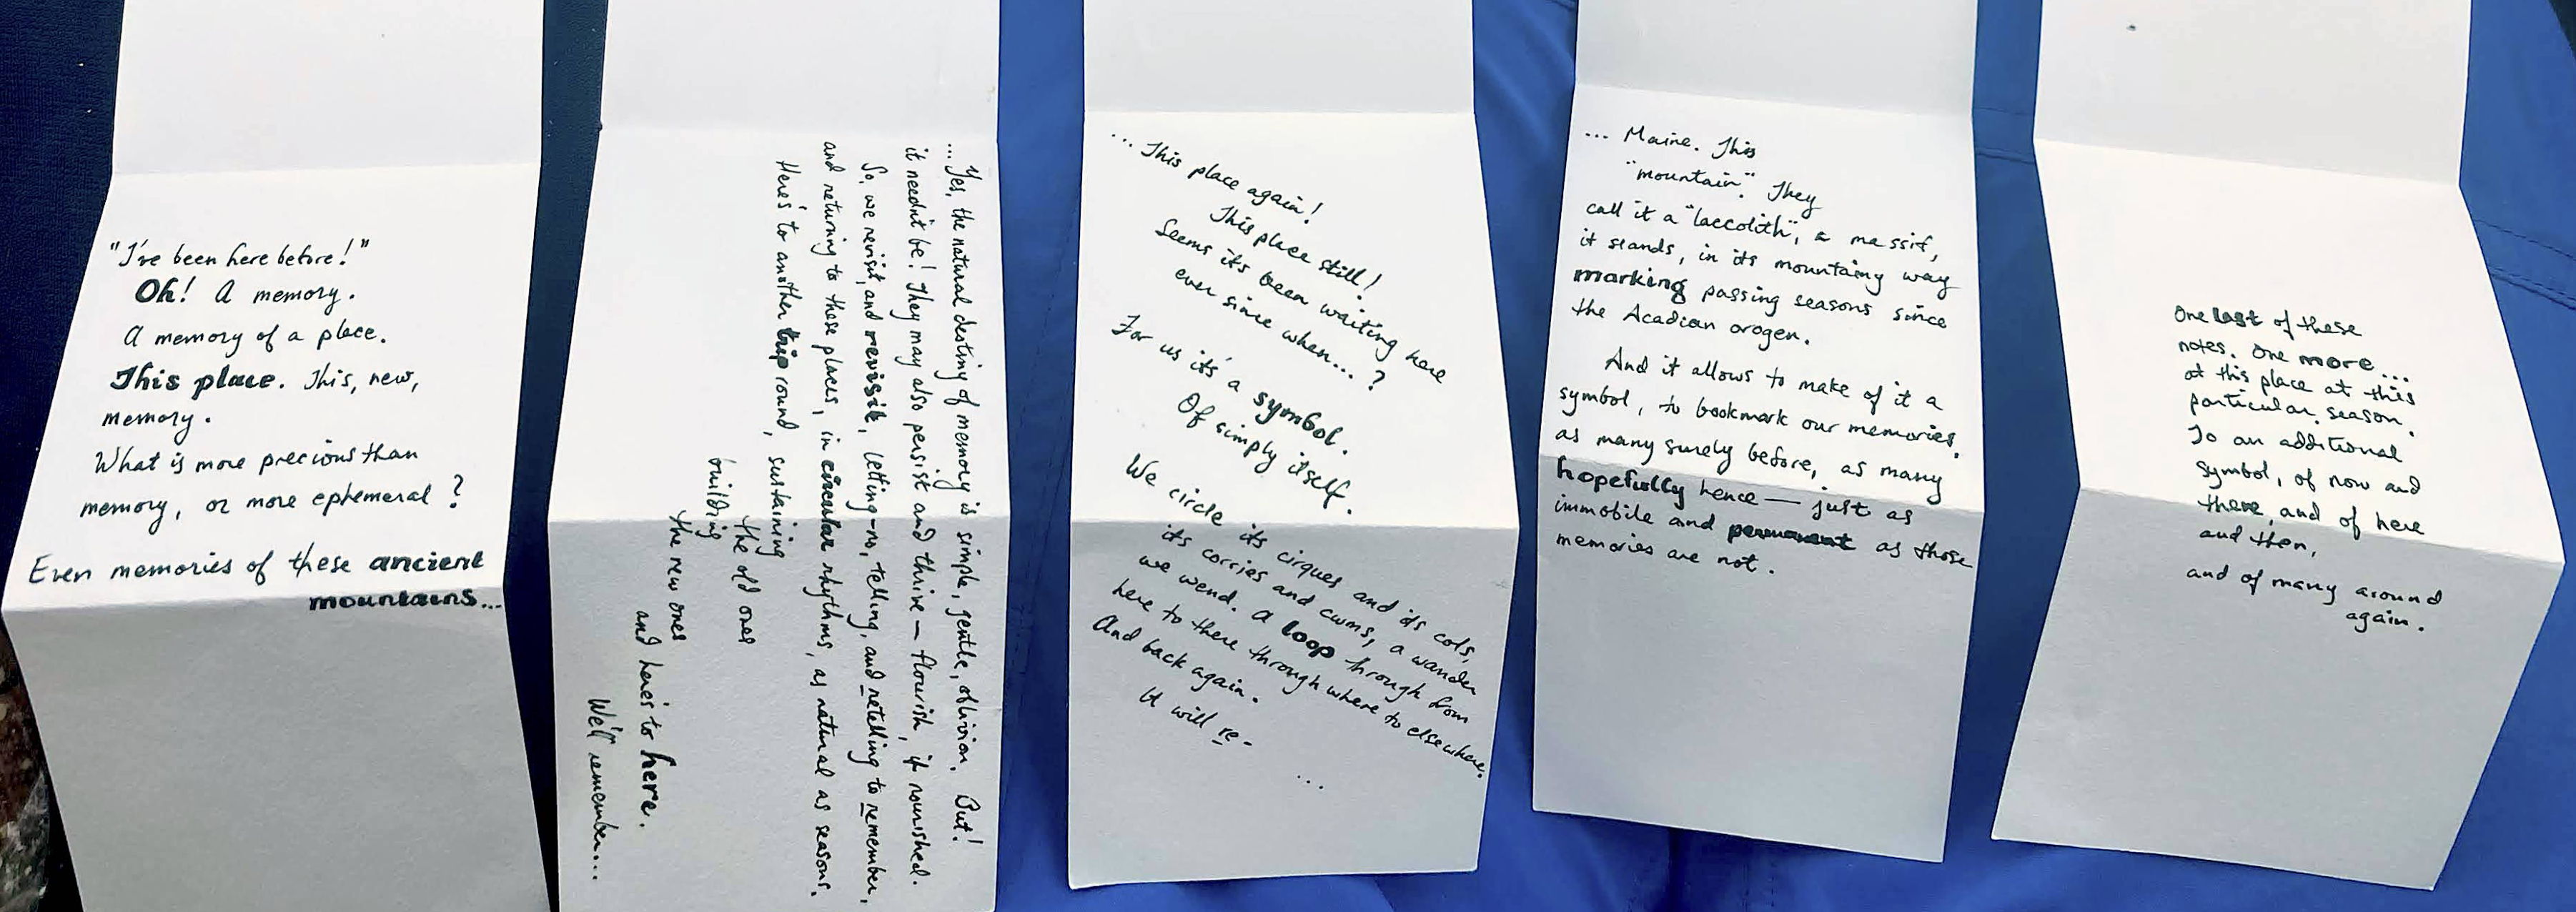 "I've been here before!"
Oh! A memory.
A memory of a place.
This place. This, new,
memory.
What is more precious than
memory, or more ephemeral?
Even memories of these ancient
mountains...
... Yes, the natural destiny of memory is simple, gentle, oblivion. But!
it needn't be! They may also persist and thrive — flourish, if nourished.
So, we revisit, and revisit, letting-no, telling, and retelling to remember,
and returning to these places, in circular rhythms, as natural as seasons.
Here's to another trip round, sustaining
the old ones
building
the new ones
and here's to here.
We'll remember...
... This place again!
This place still!
Seems its been waiting here
ever since when... ?
For us it's a symbol.
Of simply itself.
We circle its cirques and its cols,
its corries and cwms, a wander
we wend. A loop through from
here to there through where to elsewhere.
And back again.
It will re-
...
... Maine. This
"mountain." They
call it a "laccolith", a massif,
it stands, in its mountainy way
marking passing seasons since
the Acadian orogen.
And it allows to make of it a
symbol, to bookmark our memories,
as many surely before, as many
hopefully hence — just as
immobile and permanent as those
memories are not.
One last of these
notes. One more...
at this place at this
particular season.
To an additional
symbol, of now and
there, and of here
and then,
and of many around
again.